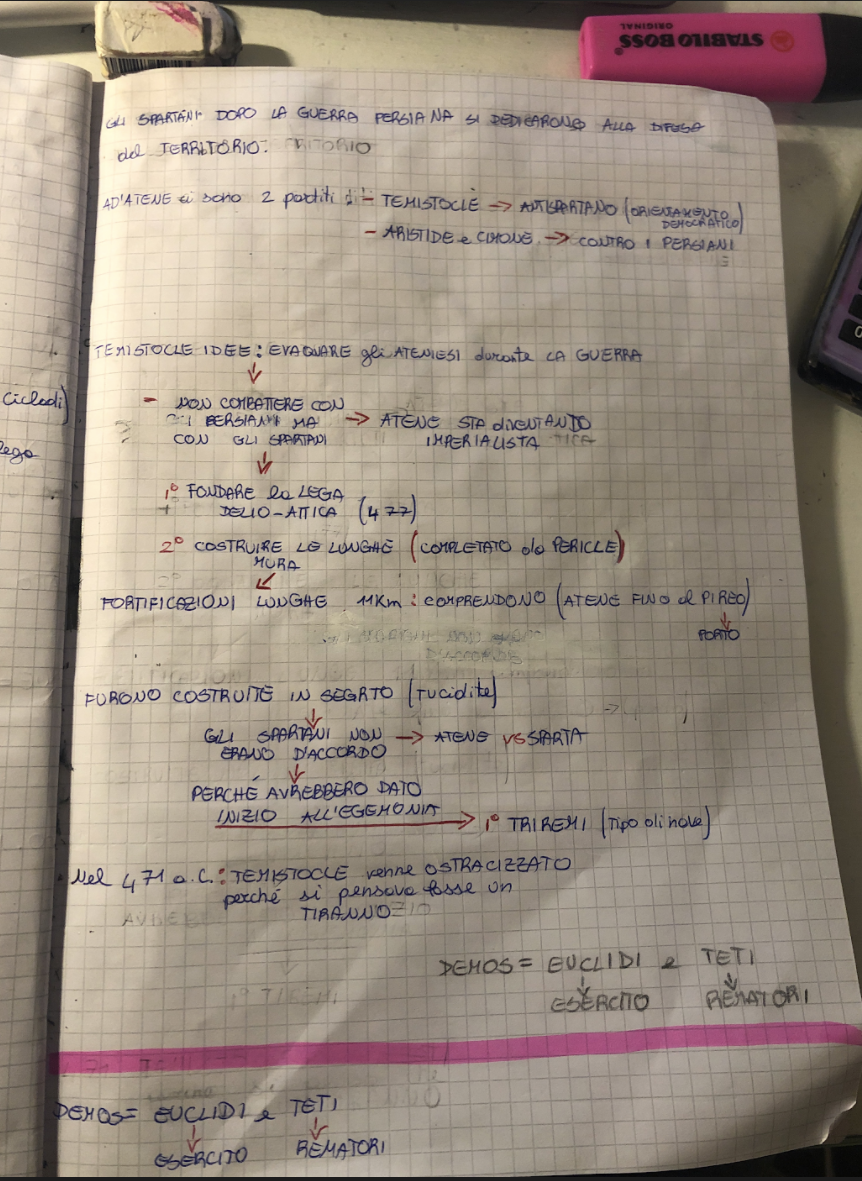 STABILO BOSS
ORIGINAL
GLI SPARTANI DOPO LA GUERRA PERSIANA SI DEDICARONO ALLA DIFESA
del TERRITORIO. RITORIO
AD'ATENE ci sono 2 partiti di - TEMISTOCLE → ANTISPARTANO (ORIENTAMENTO
DEMOCRATICO)
- ARISTIDE e CIMONE → CONTRO I PERSIANI
TEMISTOCLE IDEE: EVAQUARE gli ATENIESI durante LA GUERRA
↓
Cicladi)
- NON COMBATTERE CON
GLI PERSIANI MA → ATENE STA diVENTANDO
CON GLI SPARTANI IMPERIALISTA TICA
lega
↓
1° FONDARE la LEGA
DELIO-ATTICA (477)
2° COSTRUIRE LE LUNGHE (COMPLETATO da PERICLE)
MURA
↙
FORTIFICAZIONI LUNGHE 11Km: COMPRENDONO (ATENE FINO al PIREO)
↓
PORTO
FURONO COSTRUITE IN SEGRTO (Tucidite)
↓
GLI SPARTANI NON → ATENE VS SPARTA
ERANO D'ACCORDO
↓
PERCHÉ AVREBBERO DATO
INIZIO ALL'EGEMONIA → 1° TRIREMI (Tipo di nave)
Nel 471 a.C.: TEMISTOCLE venne OSTRACIZZATO
perché si pensava fosse un
TIRANNO
DEMOS= EUCLIDI e TETI
↓ ↓
ESERCITO REMATORI
DEMOS= EUCLIDI e TETI
↓ ↓
ESERCITO REMATORI